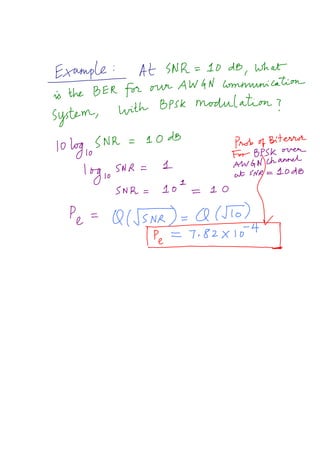 Example: At SNR = 10 dB, what
is the BER for our AWGN communication
system, with BPSK modulation?
10 log₁₀ SNR = 10 dB
log₁₀ SNR = 1
SNR = 10¹ = 10
Prob of Bit error
For BPSK over
AWGN channel
at SNR = 10dB
Pe = Q(√SNR) = Q(√10)
Pe = 7.82 × 10⁻⁴